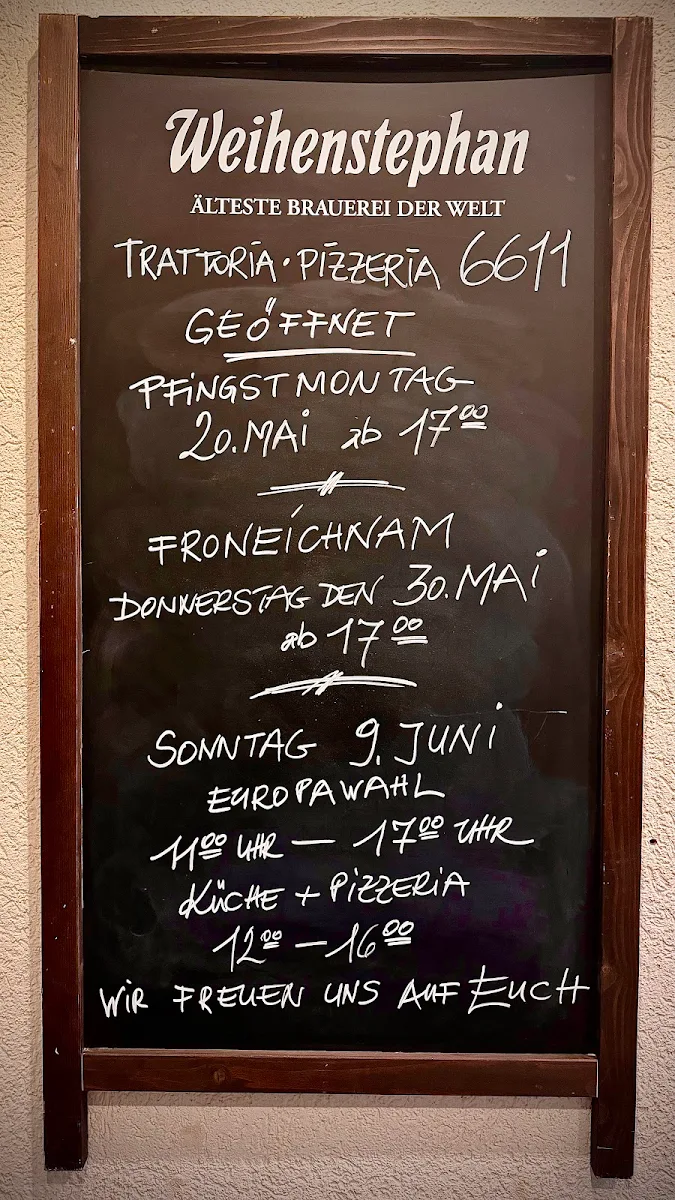 Weihenstephan
ÄLTESTE BRAUEREI DER WELT
TRATTORIA · PIZZERIA 6611
GEÖFFNET
PFINGSTMONTAG
20. MAI ab 17⁰⁰
FRONEICHNAM
DONNERSTAG DEN 30. MAI
ab 17⁰⁰
SONNTAG 9. JUNI
EUROPAWAHL
11⁰⁰ UHR — 17⁰⁰ UHR
KÜCHE + PIZZERIA
12⁰⁰ — 16⁰⁰
WIR FREUEN UNS AUF EUCH